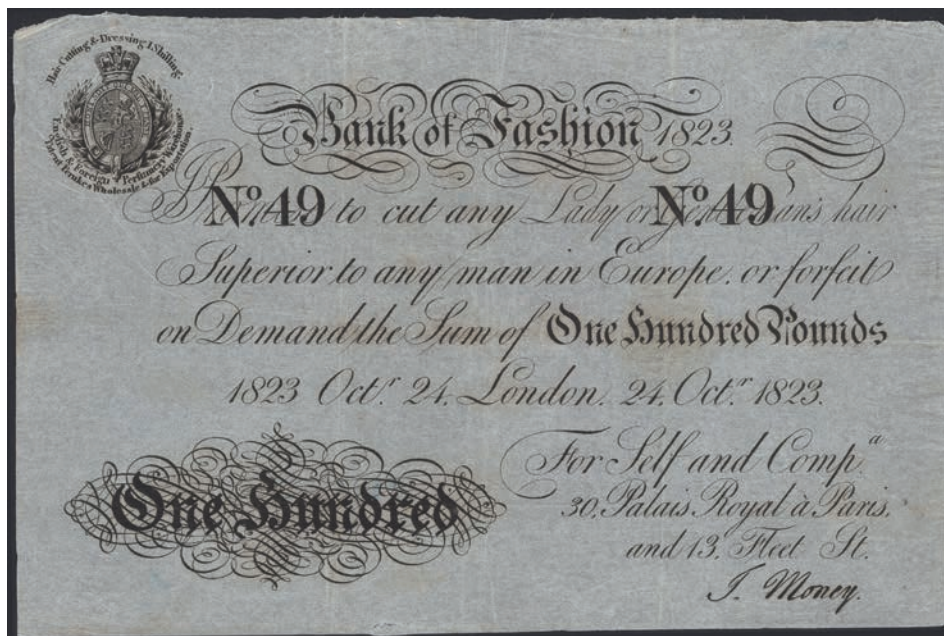 Hair Cutting & Dressing 1 Shilling.
English & Foreign Perfumery Warehouse
Patent Perukes Wholesale & for Exportation.
Bank of Fashion 1823.
No. 49 to cut any Lady or No. 49 hair
Superior to any man in Europe. or forfeit
on Demand the Sum of One Hundred Pounds
1823 Octr. 24. London. 24. Octr. 1823.
One Hundred
For Self and Compa
30, Palais Royal à Paris.
and 13, Fleet St.
J. Money.